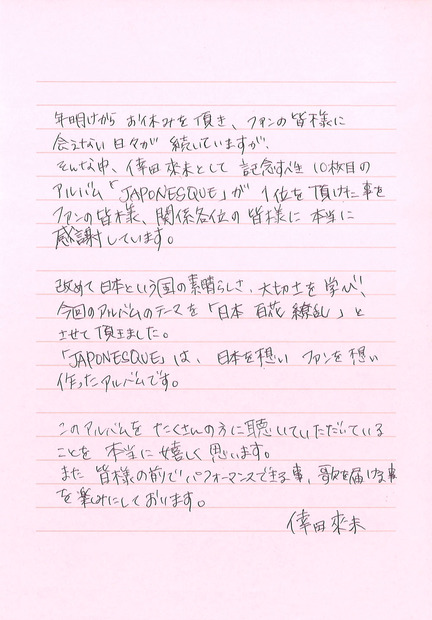 年明けから お休みを頂き、ファンの皆様に
会えない日々が 続いていますが、
そんな中、倖田來未として 記念すべき10枚目の
アルバム「JAPONESQUE」が 1位を頂けた事を
ファンの皆様、関係各位の皆様に 本当に
感謝しています。
改めて日本という国の素晴らしさ、大切さを学び、
今回のアルバムのテーマを「日本 百花繚乱」と
させて頂きました。
「JAPONESQUE」は、日本を想い ファンを想い
作ったアルバムです。
このアルバムを たくさんの方に聴いていただいている
ことを 本当に嬉しく思います。
また 皆様の前でパフォーマンスできる事、歌を届ける事
を楽しみにしております。
倖田來未